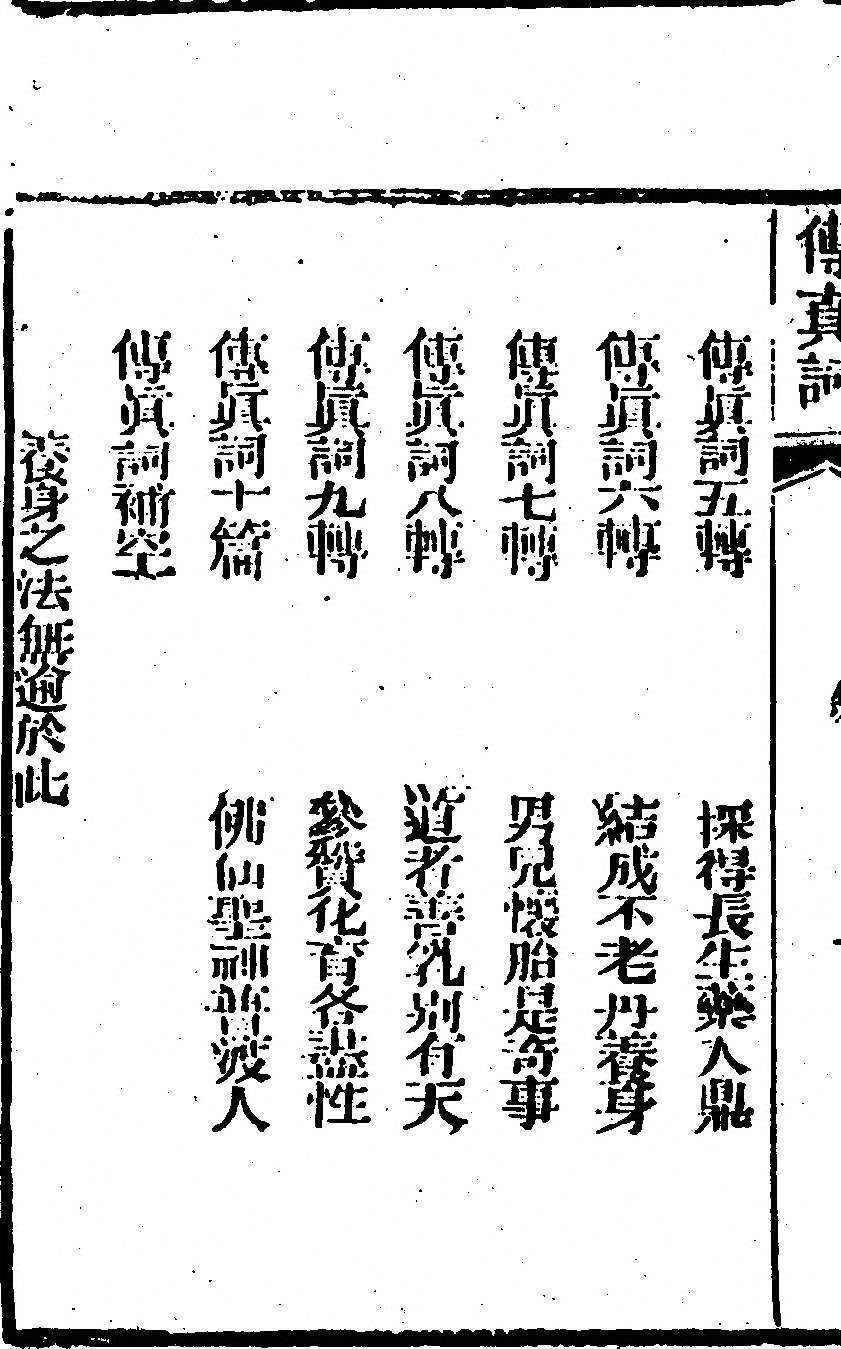 傳真詞
傳眞詞五轉 採得長生藥入鼎
傳眞詞六轉 結成不老丹養身
傳眞詞七轉 男兒懷胎是奇事
傳眞詞八轉 道者善乳別有天
傳眞詞九轉 叅贊化育各盡性
傳眞詞十篇 佛仙聖神皆渡人
傳眞詞補空
養身之法無逾於此